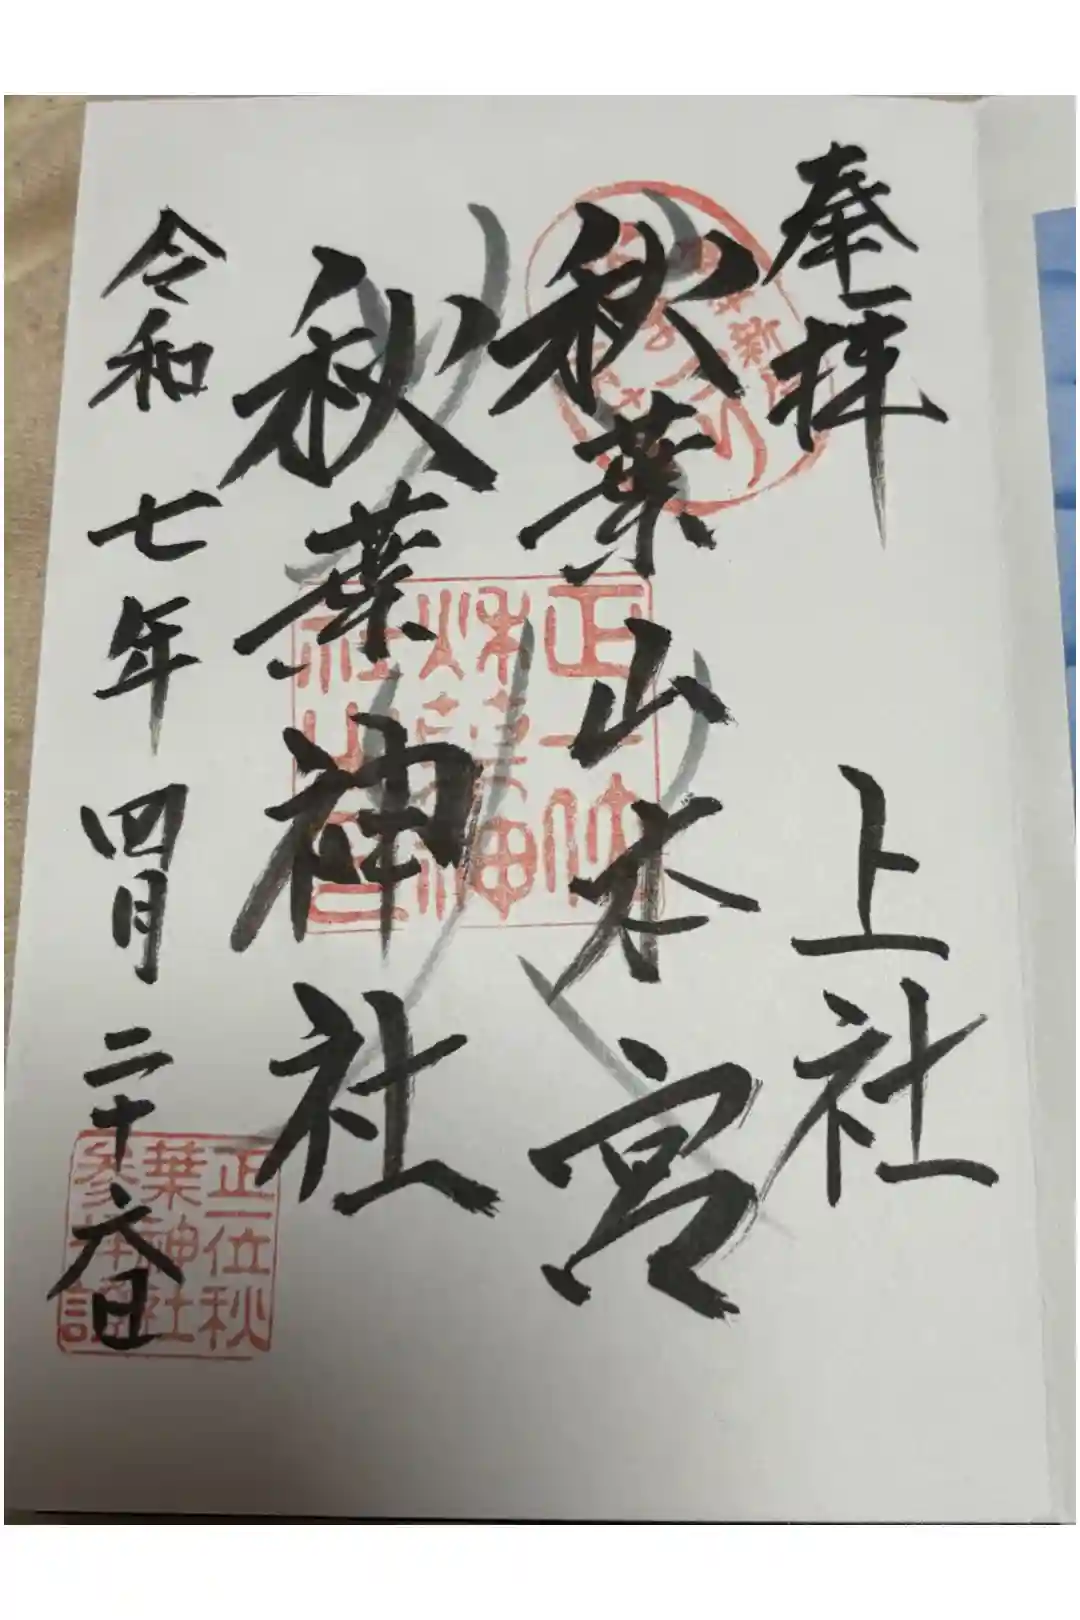 奉拝
上社
秋葉山本宮
秋葉神社
令和七年四月二十六日
正一位秋
葉神社
参拝証